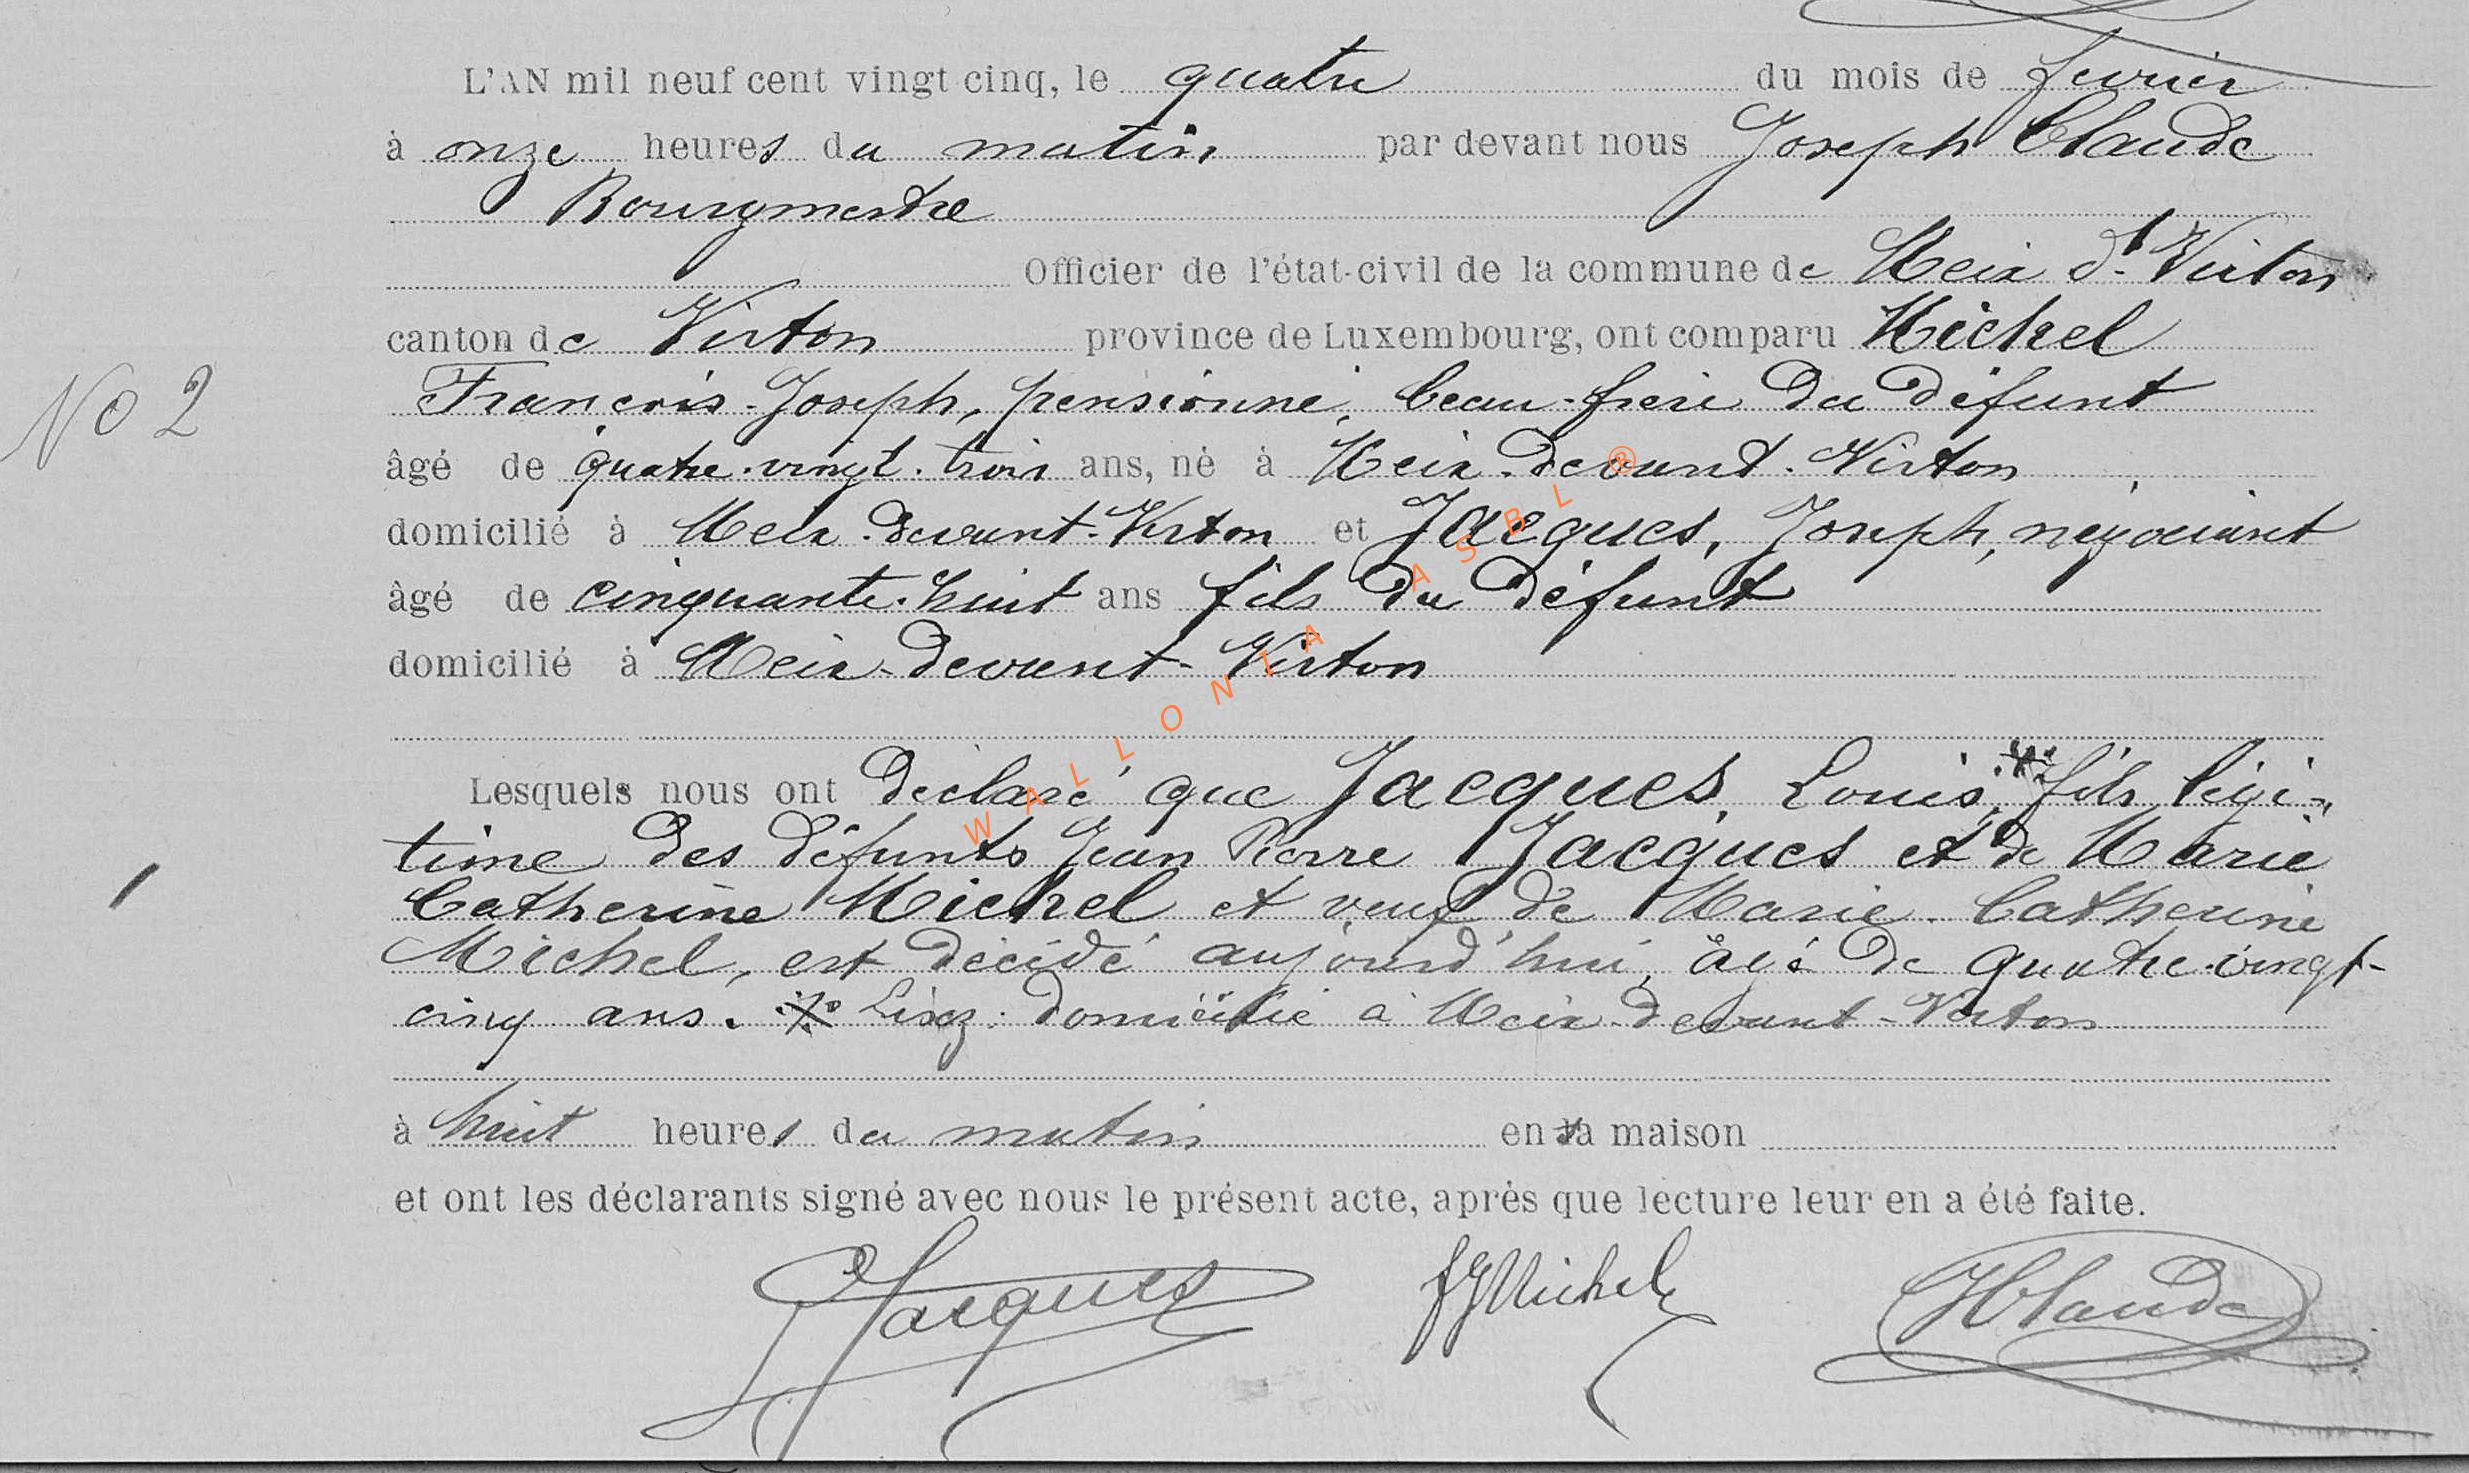 L'AN mil neuf cent vingt cinq, le quatre du mois de fevrier
à onze heures du matin par devant nous Joseph Claude
Bourgmestre
Officier de l'état-civil de la commune de Meix dt Virton
canton de Virton province de Luxembourg, ont comparu Michel
N° 2
François-Joseph, pensionné, beau-frère du défunt
âgé de quatre-vingt-trois ans, né à Meix-devant-Virton
domicilié à Meix-devant-Virton et Jacques, Joseph, négociant
âgé de cinquante-huit ans fils du défunt
domicilié à Meix-devant-Virton
WALLONIA ASBL ®
Lesquels nous ont déclaré que Jacques, Louis, * fils légi-
time des défunts Jean Pierre Jacques et de Marie
Catherine Michel et veuf de Marie-Catherine
Michel, est décédé aujourd'hui, âgé de quatre-vingt-
cinq ans. * Lisez: domicilié à Meix-devant-Virton
à huit heures du matin en sa maison
et ont les déclarants signé avec nous le présent acte, après que lecture leur en a été faite.
Jacques FJMichel JClaude